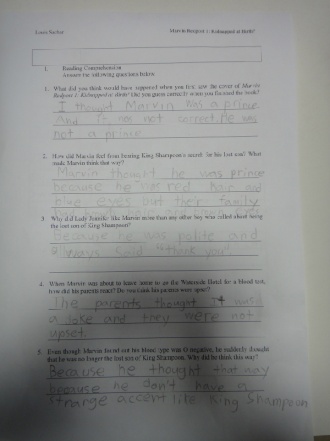 Louis Sachar Marvin Redpost 1: Kidnapped at Birth?
I. Reading Comprehension
Answer the following questions below.
1. What did you think would have happened when you first saw the cover of Marvin
Redpost 1: Kidnapped at Birth? Did you guess correctly when you finished the book?
I thought Marvin was a prince.
And I'm not correct. He was
not a prince
2. How did Marvin feel from hearing King Shampoon's search for his lost son? What
made Marvin think that way?
Marvin thought he was prince
because he has red hair and
blue eyes but their family
3. Why did Lady Jennifer like Marvin more than any other boy who called about being
the lost son of King Shampoon?
Because he was polite and
always said "thank you"
4. When Marvin was about to leave home to go the Watergate Hotel for a blood test,
how did his parents react? Do you think his parents were upset?
The parents thought it was
a joke and they were not
upset.
5. Even though Marvin found out his blood type was O negative, he suddenly thought
that he was no longer the lost son of King Shampoon. Why did he think this way?
Because he thought that way
because he don't have a
strange accent like King Shampoon